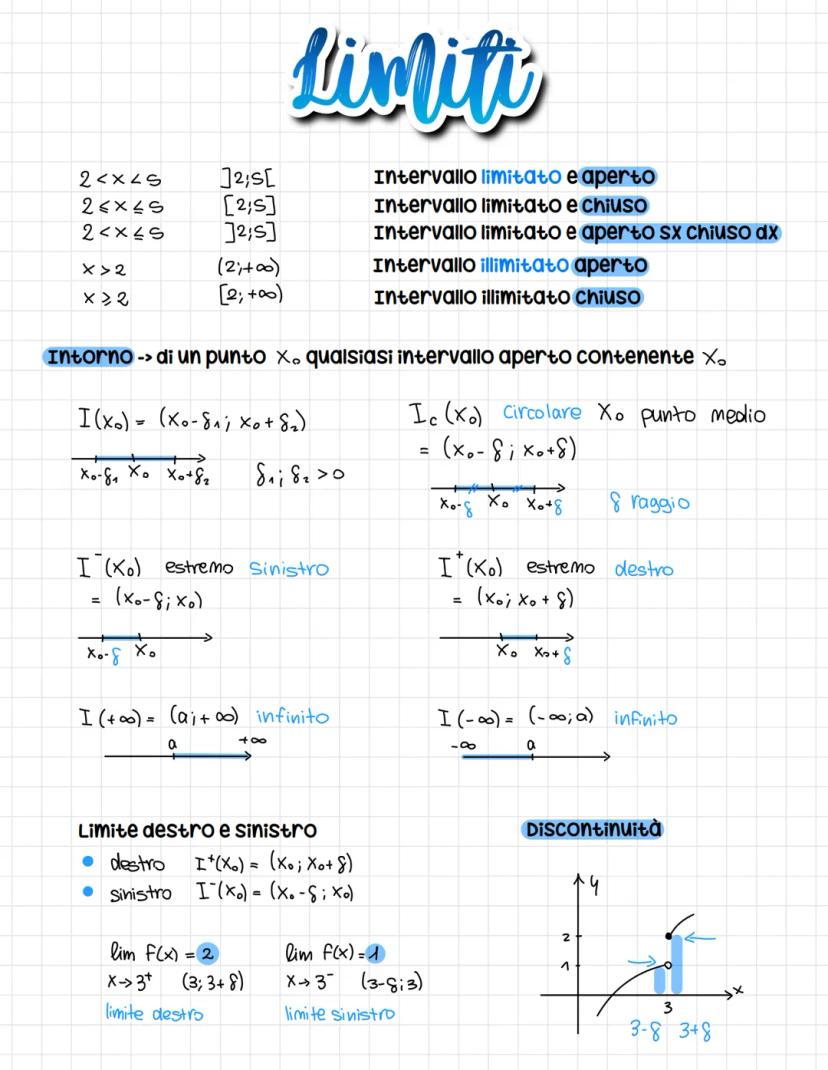 Limiti
2 < x < 5 ]2;5[ Intervallo limitato e aperto
2 ≤ x ≤ 5 [2;5] Intervallo limitato e chiuso
2 < x ≤ 5 ]2;5] Intervallo limitato e aperto sx chiuso dx
x > 2 (2;+∞) Intervallo illimitato aperto
x ≥ 2 [2;+∞) Intervallo illimitato chiuso
Intorno -> di un punto x₀ qualsiasi intervallo aperto contenente x₀
I(x₀) = (x₀-δ₁; x₀+δ₂)
x₀-δ₁ x₀ x₀+δ₂ δ₁; δ₂ > 0
Ic(x₀) circolare x₀ punto medio
= (x₀-δ; x₀+δ)
x₀-δ x₀ x₀+δ δ raggio
I⁻(x₀) estremo sinistro
= (x₀-δ; x₀)
x₀-δ x₀
I⁺(x₀) estremo destro
= (x₀; x₀+δ)
x₀ x₀+δ
I(+∞) = (a;+∞) infinito
a +∞
I(-∞) = (-∞;a) infinito
-∞ a
Limite destro e sinistro
• destro I⁺(x₀) = (x₀; x₀+δ)
• sinistro I⁻(x₀) = (x₀-δ; x₀)
lim f(x) = 2
x→3⁺ (3; 3+δ)
limite destro
lim f(x) = 1
x→3⁻ (3-δ; 3)
limite sinistro
Discontinuità
y
2
1
x
3
3-δ 3+δ